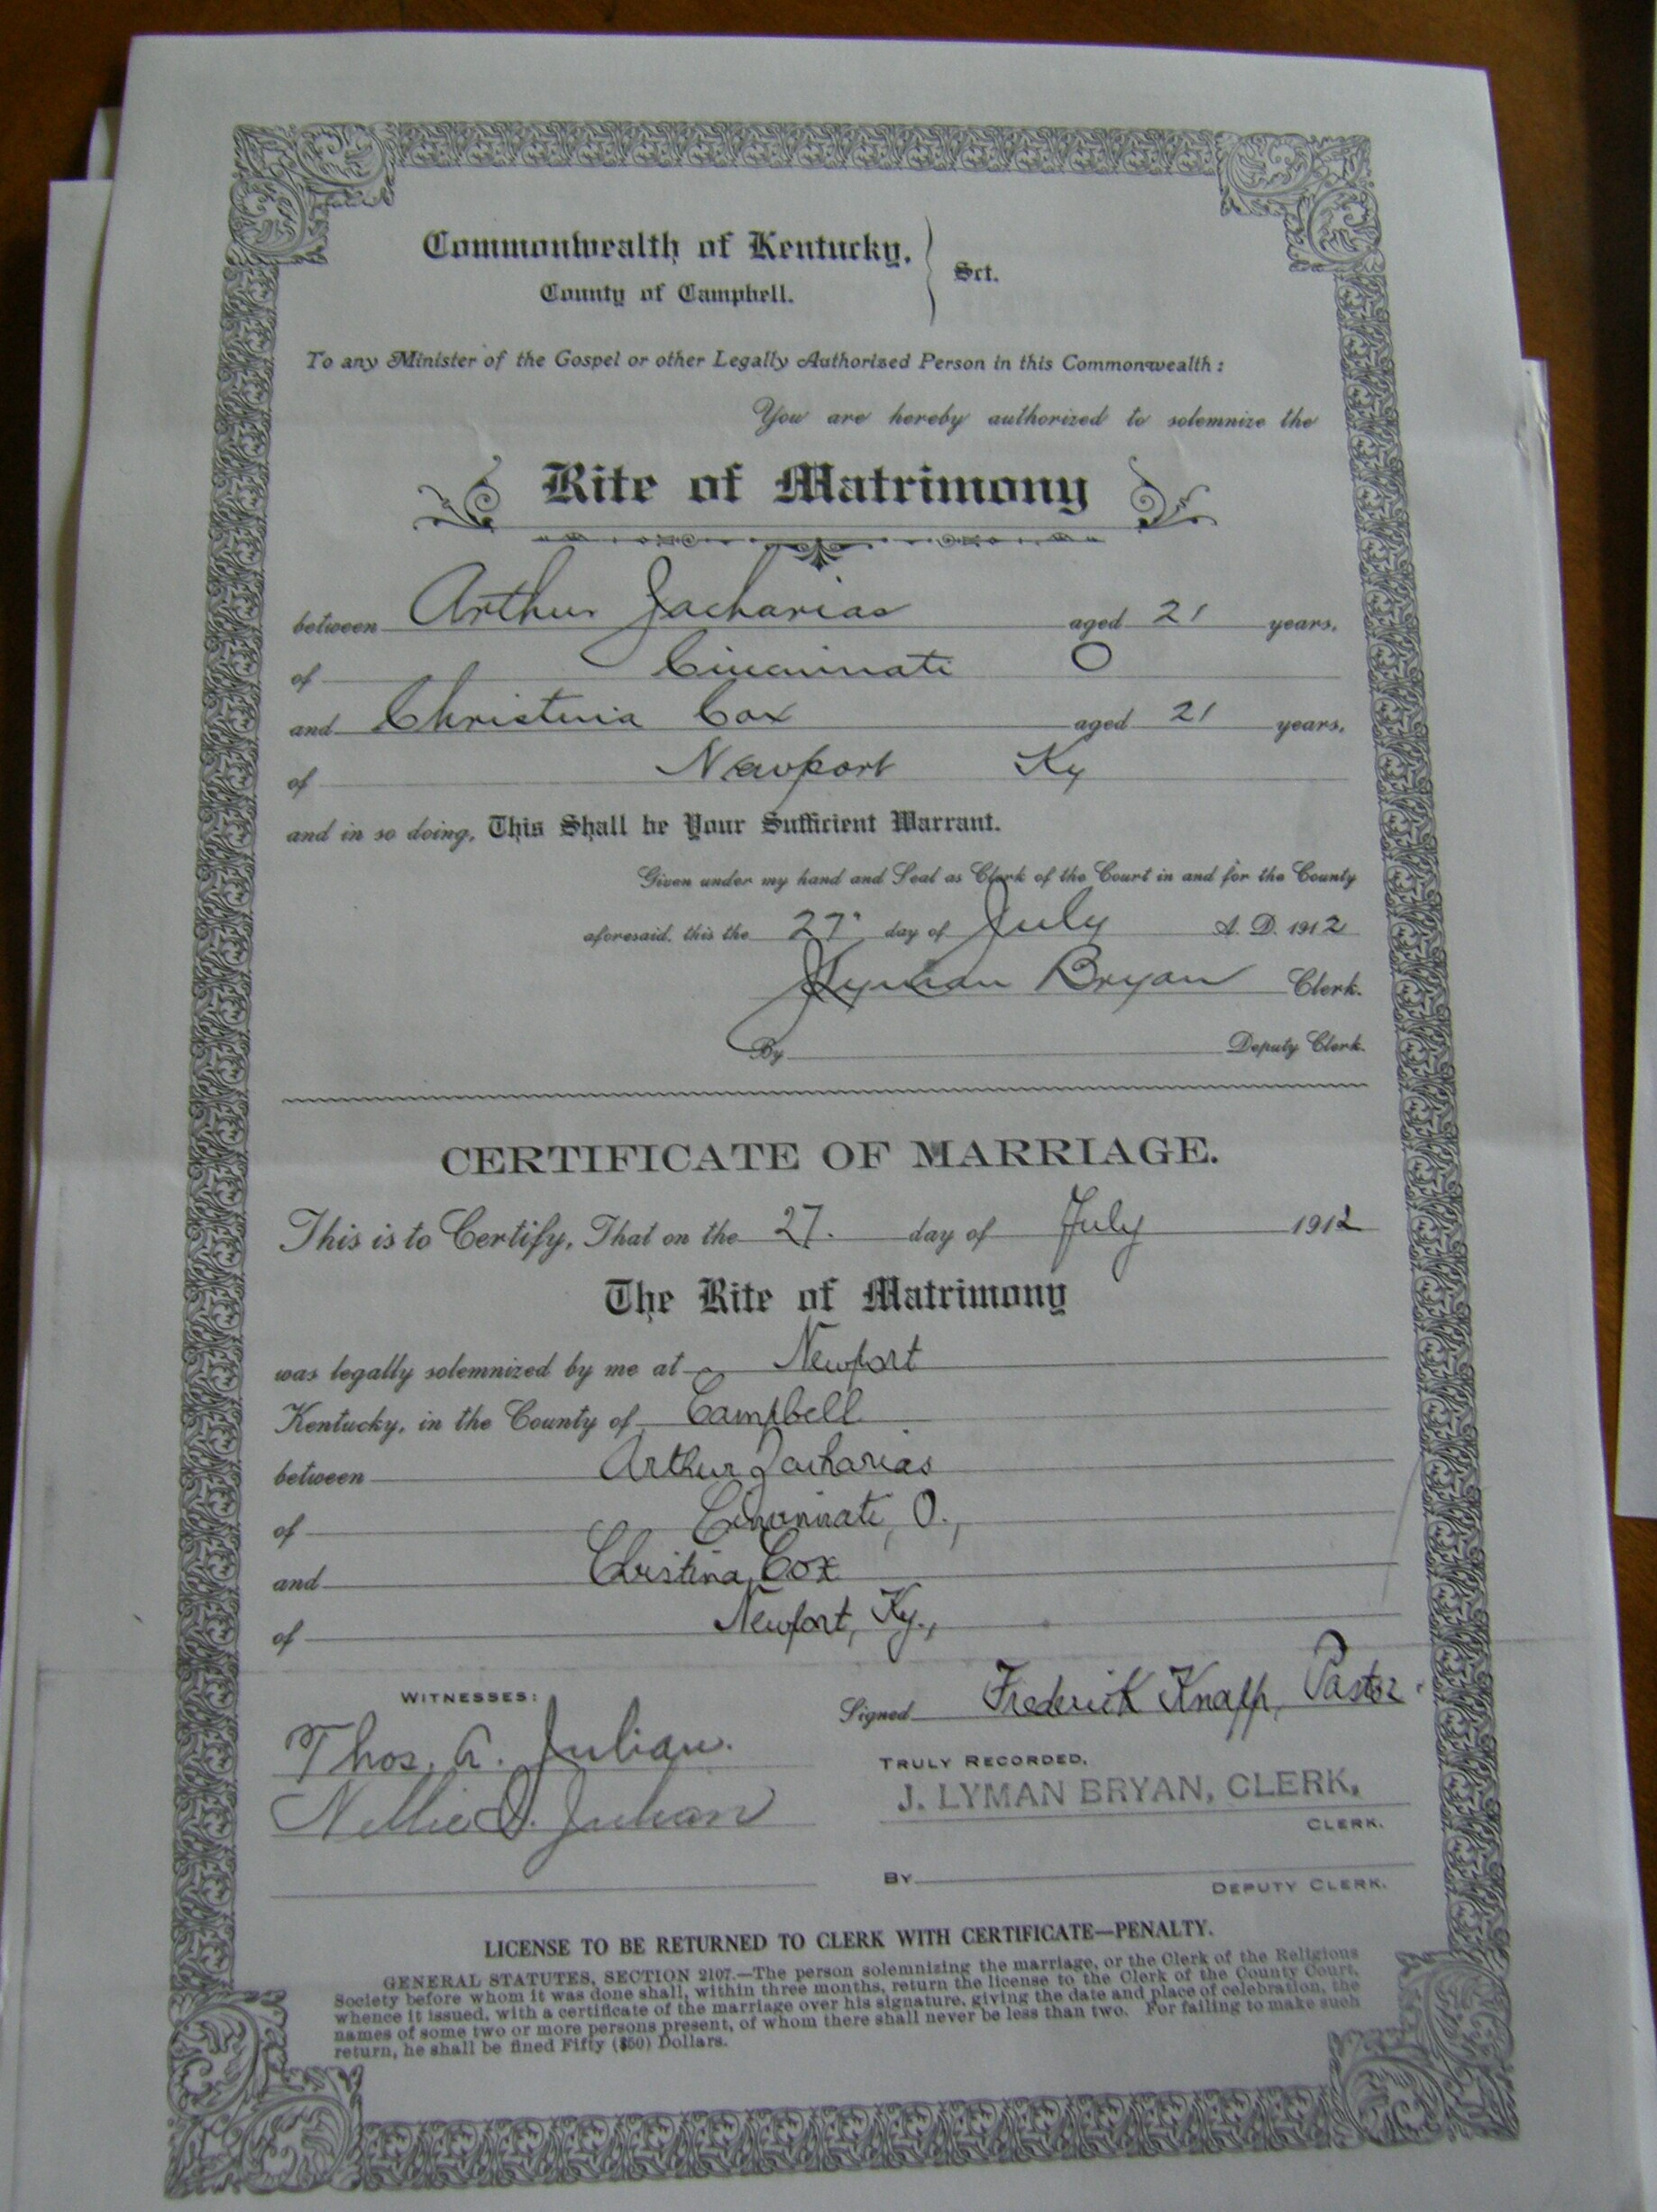 Commonwealth of Kentucky,
County of Campbell.
Sct.
To any Minister of the Gospel or other Legally Authorized Person in this Commonwealth:
You are hereby authorized to solemnize the
Rite of Matrimony
between Arthur Zacharias aged 21 years.
of Cincinnati O
and Christina Cox aged 21 years.
of Newport Ky
and in so doing, This Shall be Your Sufficient Warrant.
Given under my hand and Seal as Clerk of the Court in and for the County
aforesaid, this the 27" day of July A. D. 1912
J Lyman Bryan Clerk.
By Deputy Clerk.
CERTIFICATE OF MARRIAGE.
This is to Certify, That on the 27. day of July 1912
The Rite of Matrimony
was legally solemnized by me at Newport
Kentucky, in the County of Campbell
between Arthur Zacharias
of Cincinnati, O.,
and Christina Cox
of Newport, Ky.,
WITNESSES:
Signed Frederick Knapp, Pastor.
Thos. A. Julian.
Nellie D. Julian
TRULY RECORDED,
J. LYMAN BRYAN, CLERK,
CLERK.
BY DEPUTY CLERK.
LICENSE TO BE RETURNED TO CLERK WITH CERTIFICATE—PENALTY.
GENERAL STATUTES, SECTION 2107.—The person solemnizing the marriage, or the Clerk of the Religious
Society before whom it was done shall, within three months, return the license to the Clerk of the County Court,
whence it issued, with a certificate of the marriage over his signature, giving the date and place of celebration, the
names of some two or more persons present, of whom there shall never be less than two. For failing to make such
return, he shall be fined Fifty ($50) Dollars.